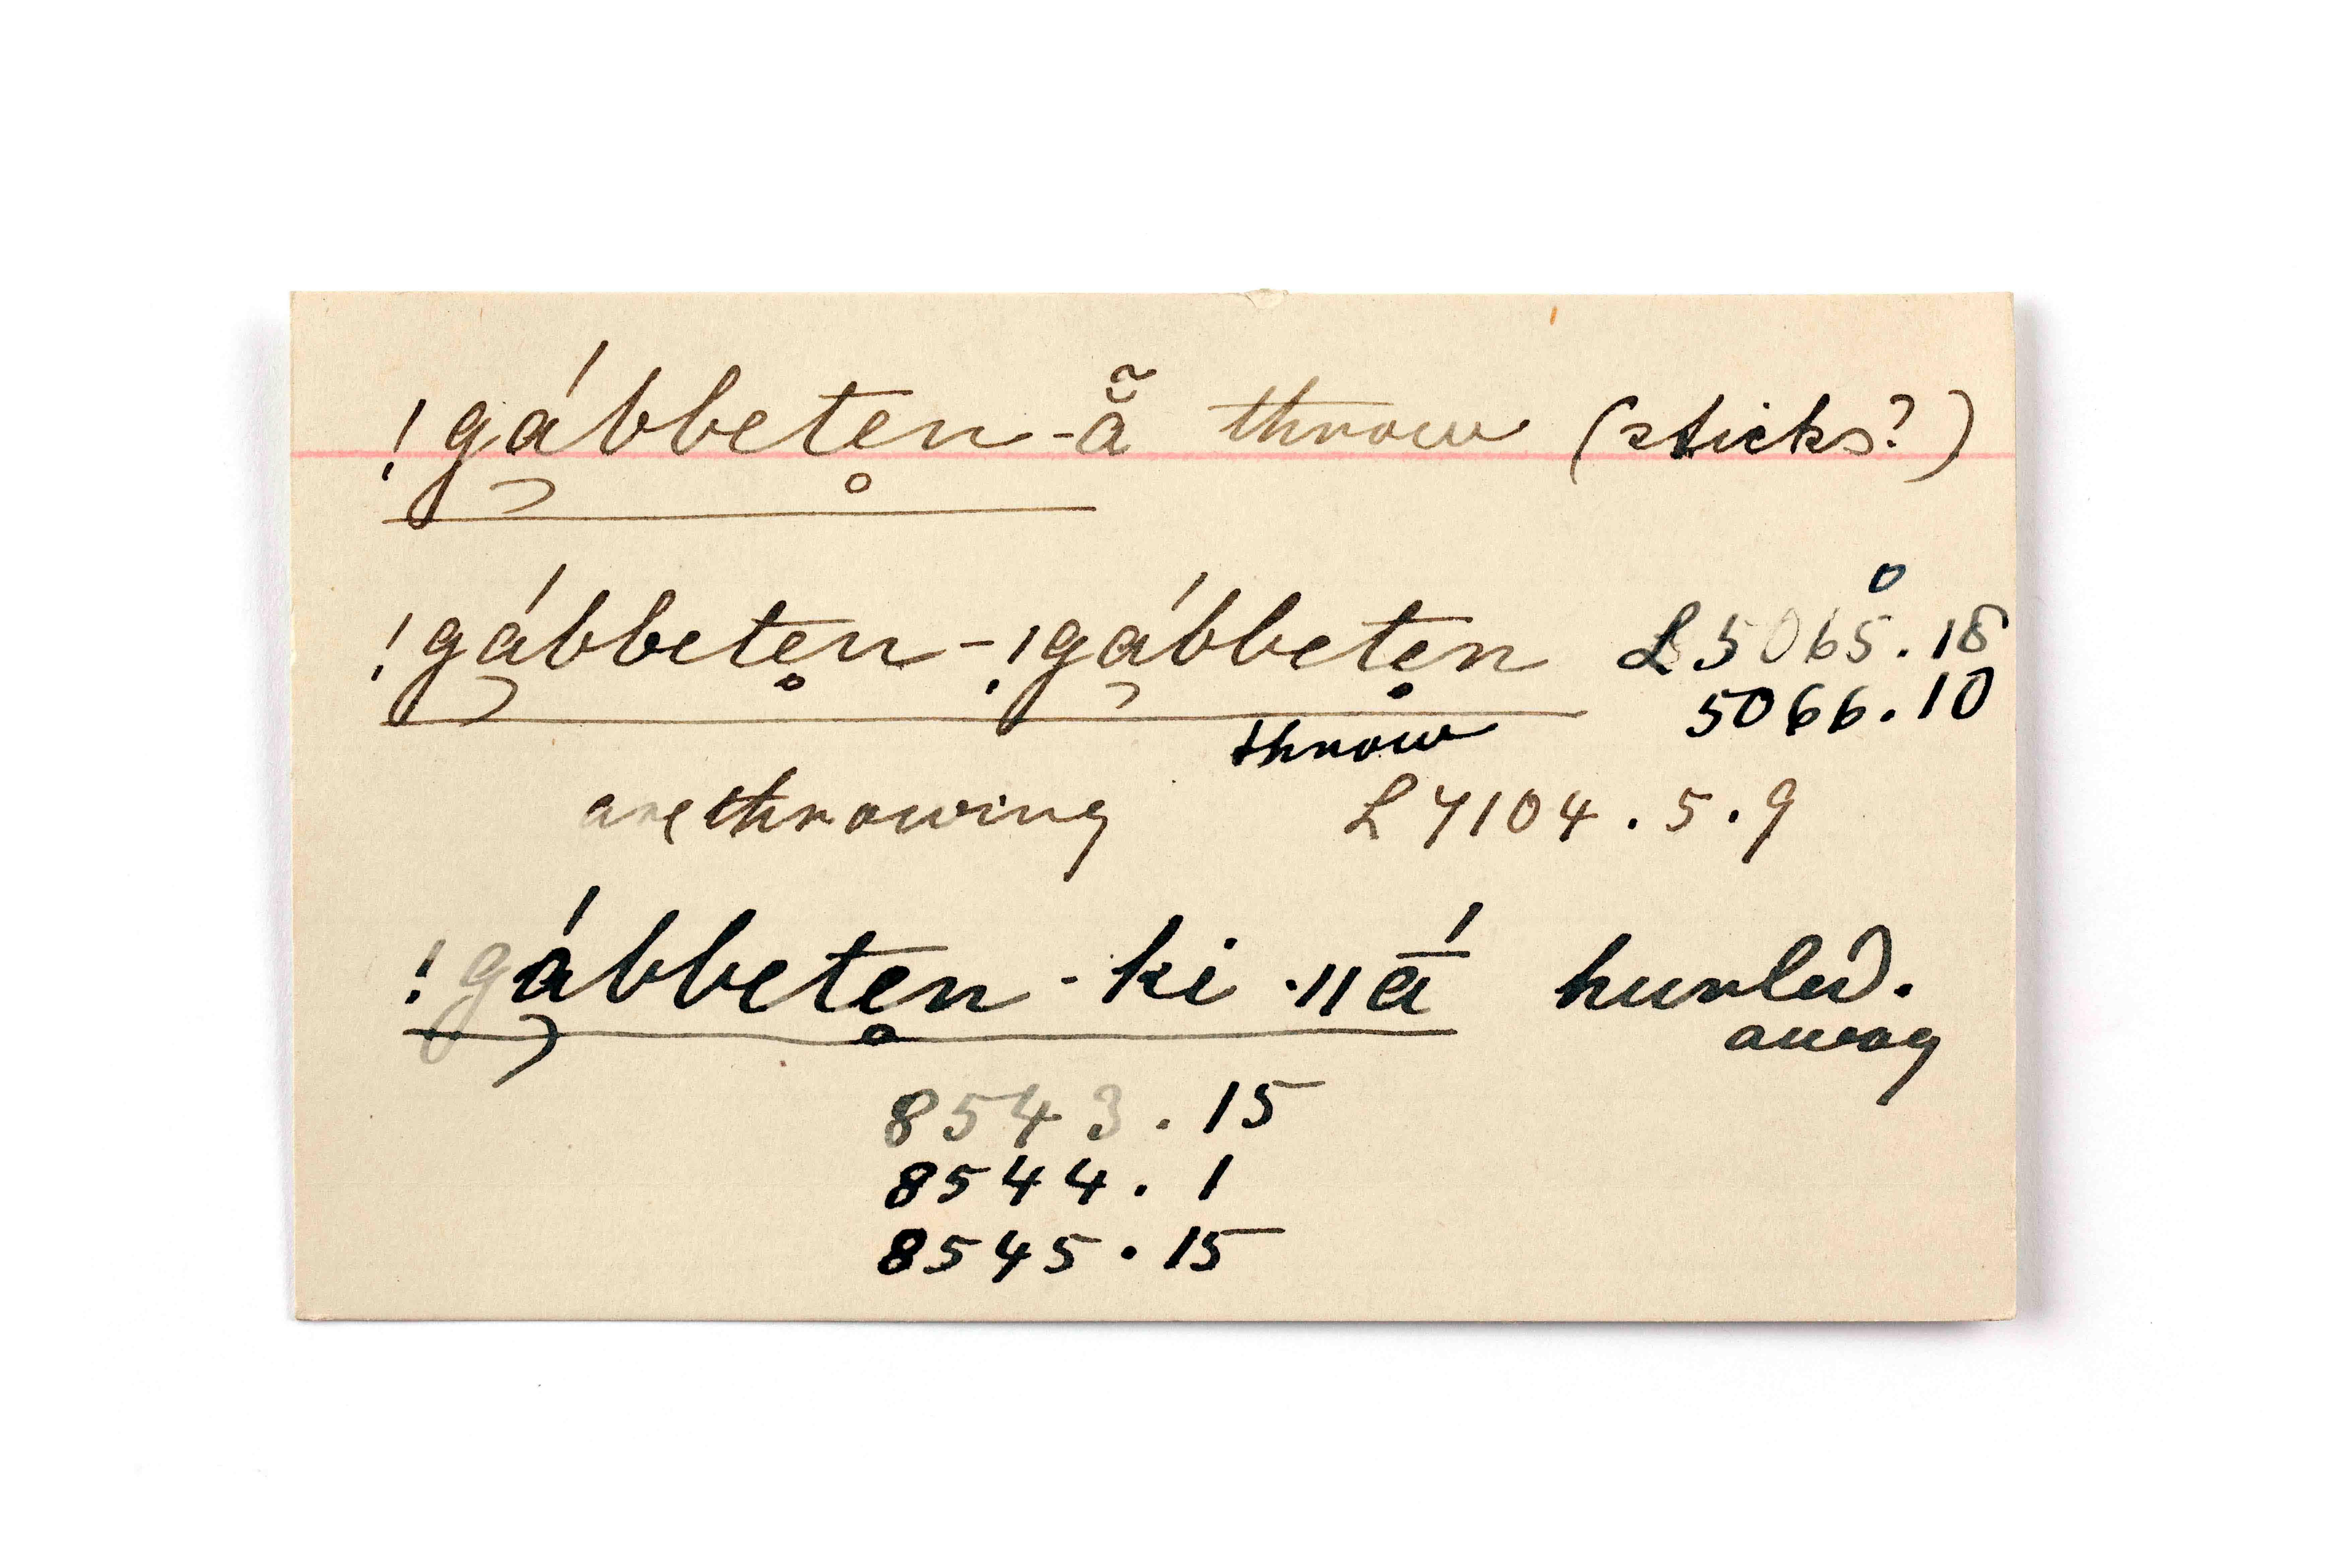 !gábbetẹn-ã̆ throw (sticks?)
!gábbetẹn-!gábbetẹn L 5065.18
throw 5066.10
are throwing L 7104.5.9
!gábbetẹn-ki-ǁā́ hurled.
away
8543.15
8544.1
8545.15